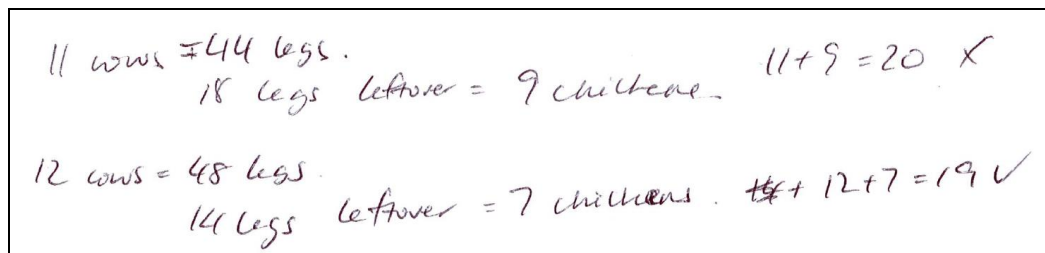 11 cows = 44 legs.
18 legs leftover = 9 chickens. 11+9 = 20 X
12 cows = 48 legs.
14 legs leftover = 7 chickens. + 12+7 = 19 ✓